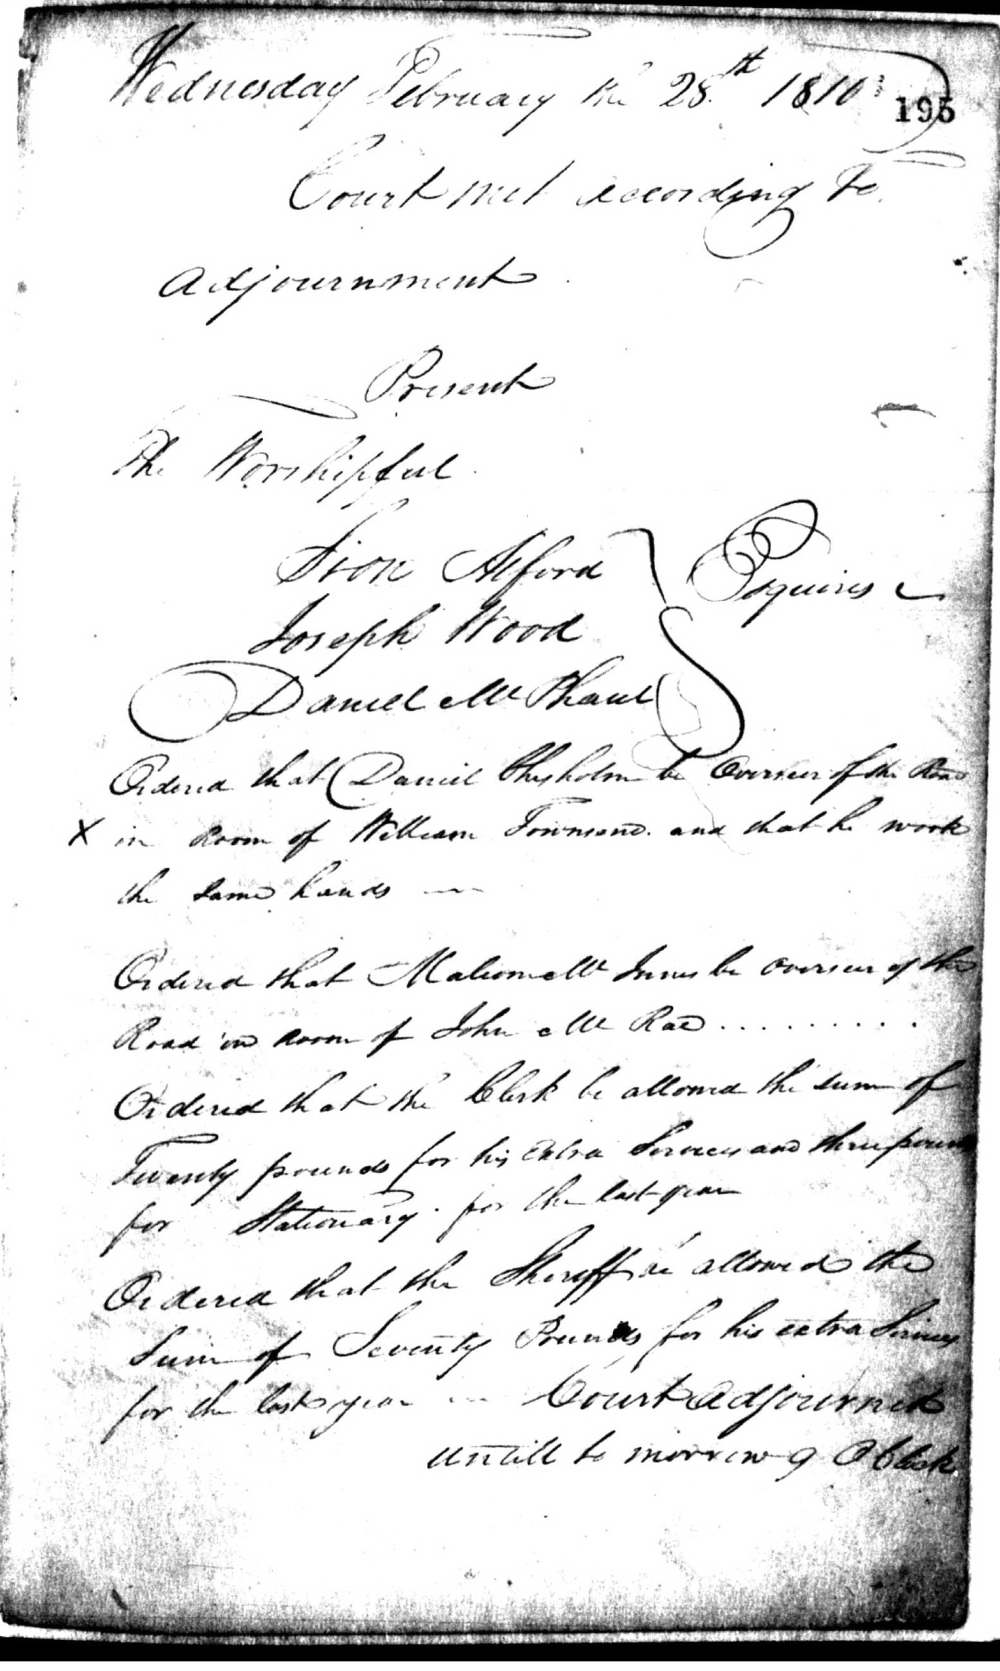 Wednesday February the 28th 1810
195
Court met according to
adjournment
Present
The Worshipful
Sion Alford
Joseph Wood
Daniel Mc Phaul
Esquires
Ordered that Daniel Chisholm be Overseer of the Road
X in Room of William Townsend. and that he work
the same hands
Ordered that Malcom Mc Innes be overseer of the
Road in room of John Mc Rae . . . . . . . . .
Ordered that the Clerk be allowed the sum of
Twenty pounds for his extra Services and three pounds
for Stationary. for the last year
Ordered that the Sheriff be allowed the
Sum of Seventy Pounds for his extra Services
for the last year Court adjourned
untill to morrow 9 O Clock